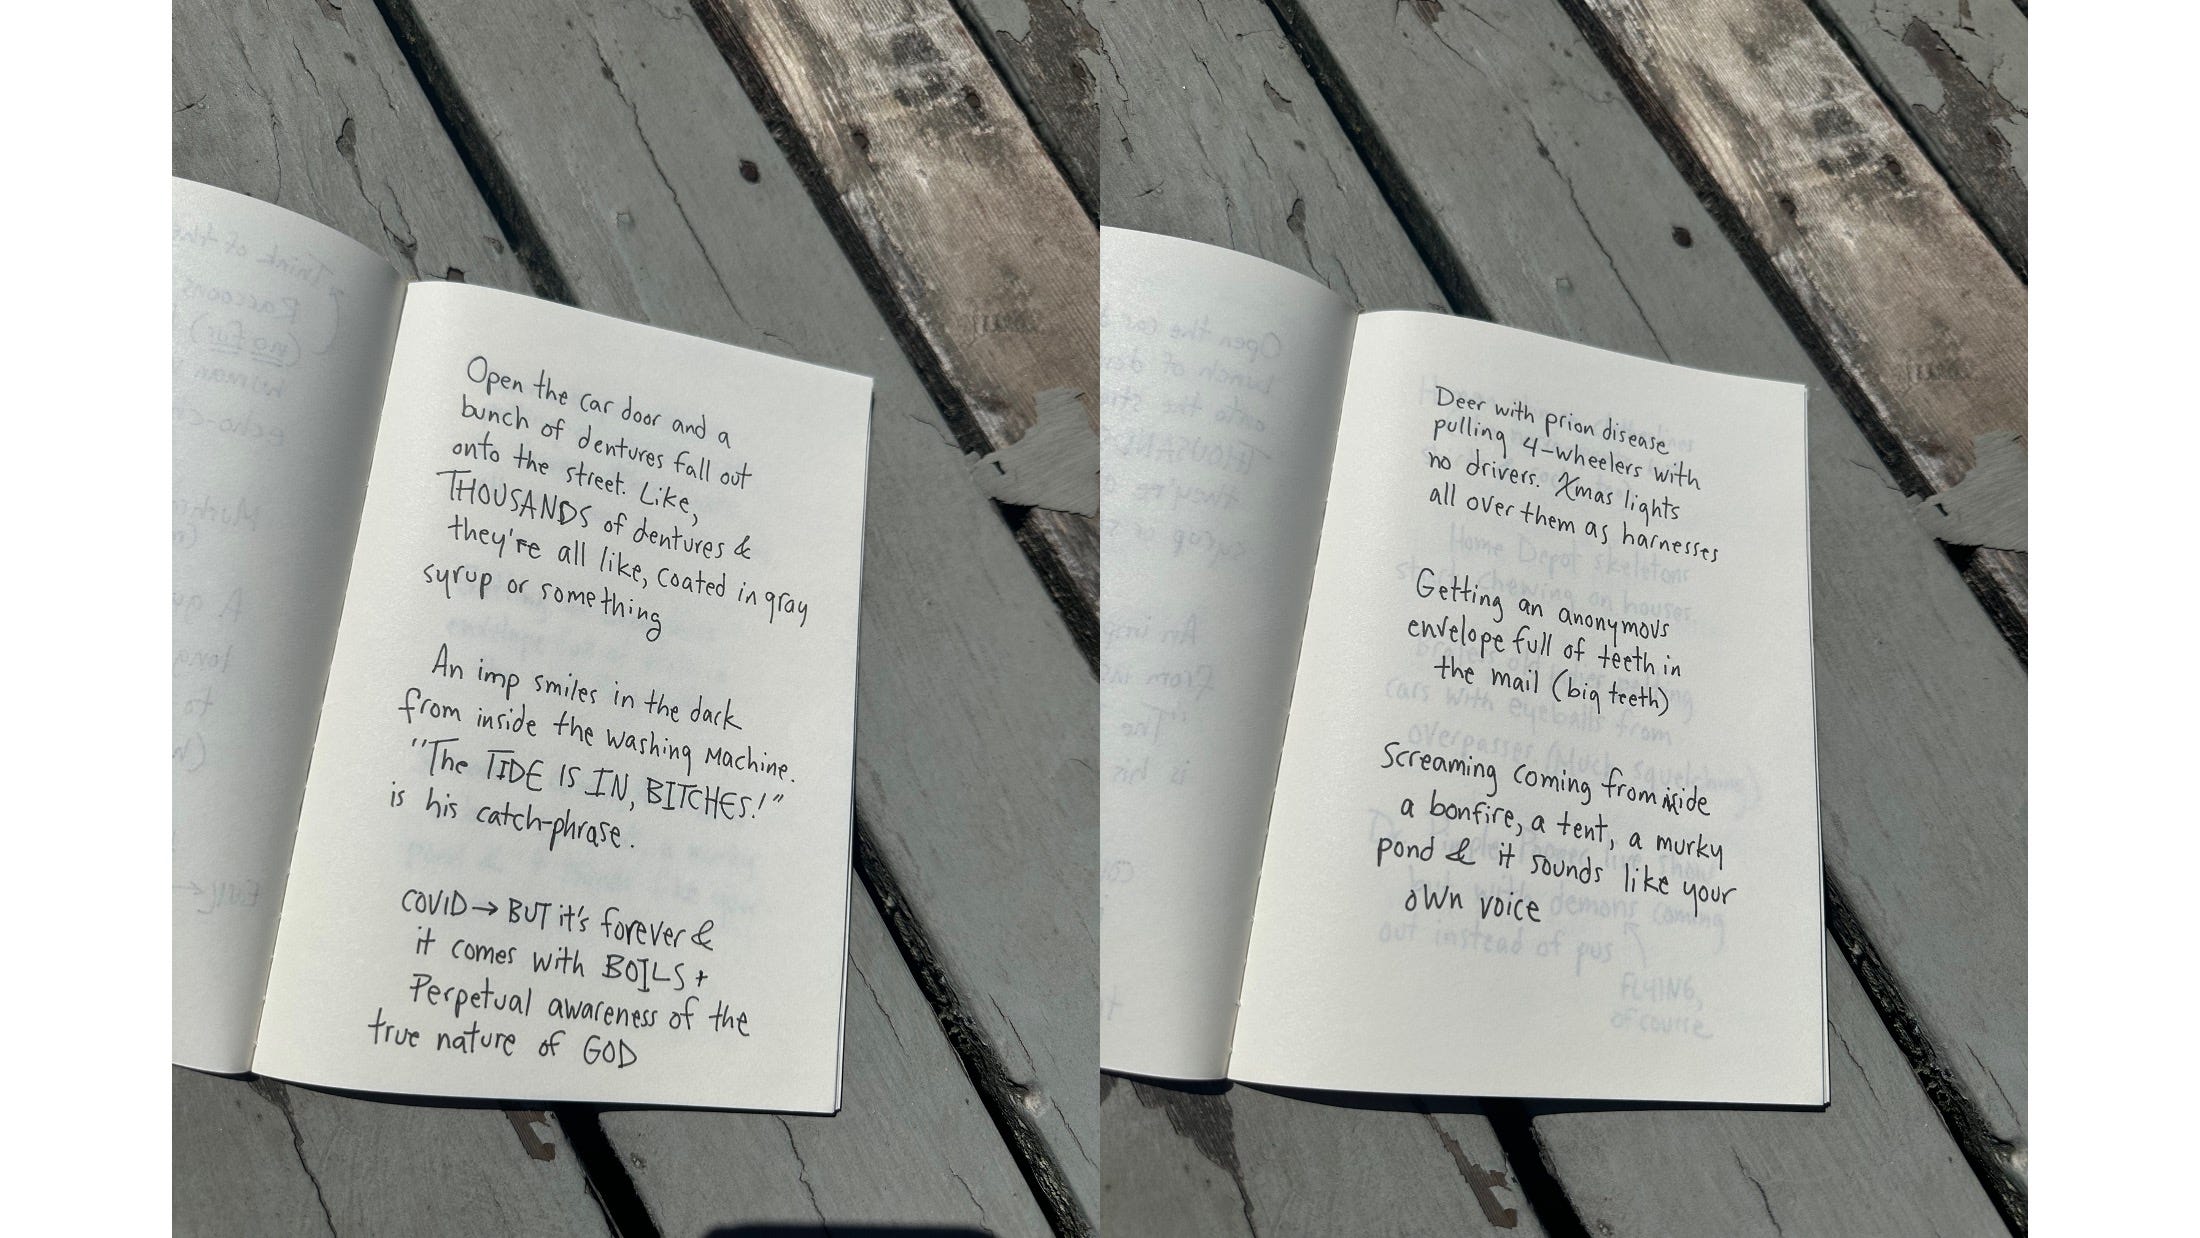 Open the car door and a
bunch of dentures fall out
onto the street. Like,
THOUSANDS of dentures &
they're all like, coated in gray
syrup or something
An imp smiles in the dark
from inside the washing machine.
"The TIDE IS IN, BITCHES!"
is his catch-phrase.
COVID → BUT it's forever &
it comes with BOILS +
Perpetual awareness of the
true nature of GOD
Deer with prion disease
pulling 4-wheelers with
no drivers. Xmas lights
all over them as harnesses
Getting an anonymous
envelope full of teeth in
the mail (big teeth)
Screaming coming from inside
a bonfire, a tent, a murky
pond & it sounds like your
own voice
Home Depot skeletons
start chewing on houses
cars with eyeballs from
overpasses (Much squelching)
but with demons coming
out instead of pus
FLYING,
of course